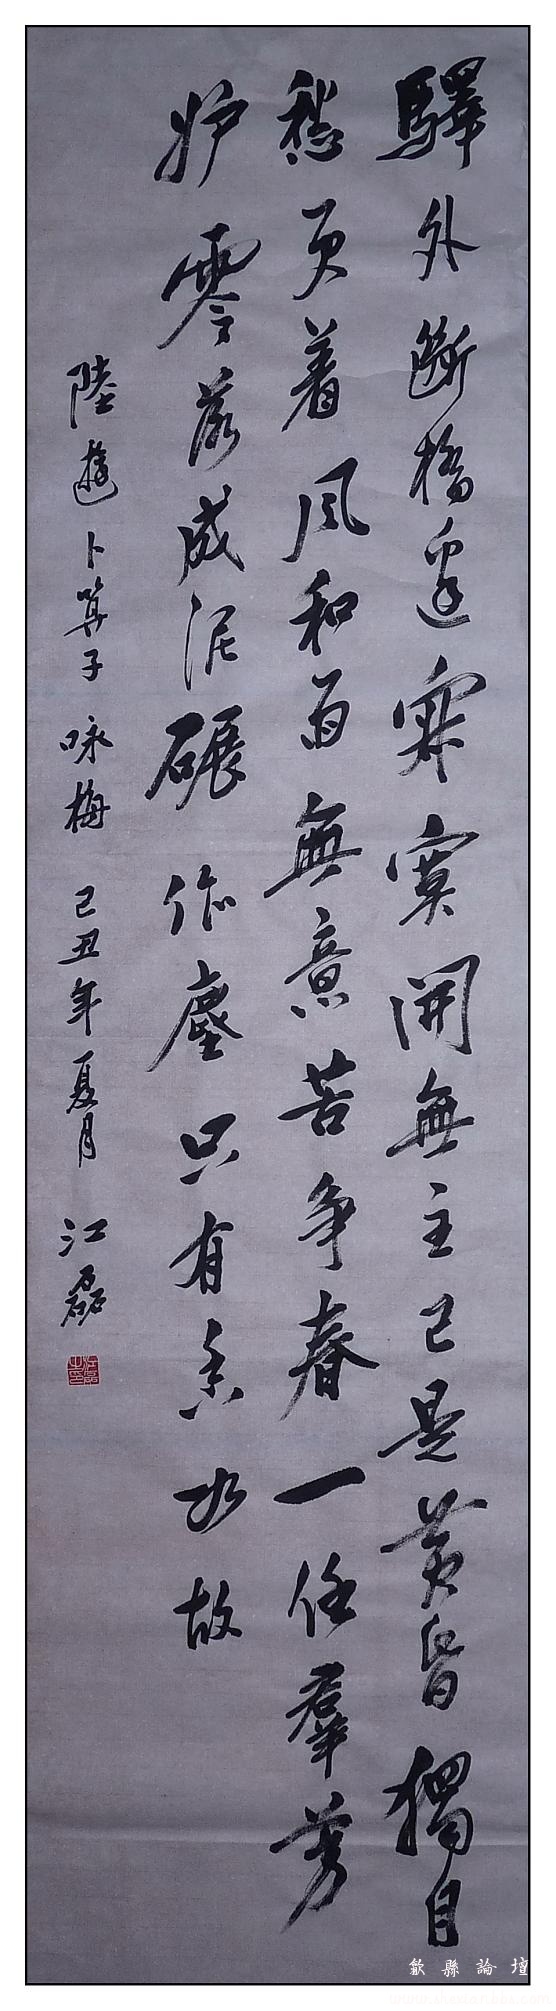 驛外斷橋邊寂寞開無主已是黃昏獨自
愁更着風和雨無意苦争春一任羣芳
妒零落成泥碾作塵只有香如故
陸遊卜算子咏梅己丑年夏月江磊
歙縣論壇